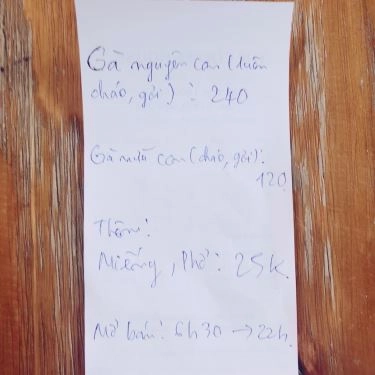 Gà nguyên con (luôn
cháo, gỏi) : 240
Gà nửa con (cháo, gỏi):
120
Thêm:
Miếng, Phở: 25k.
Mở bán: 6h30 → 22h.